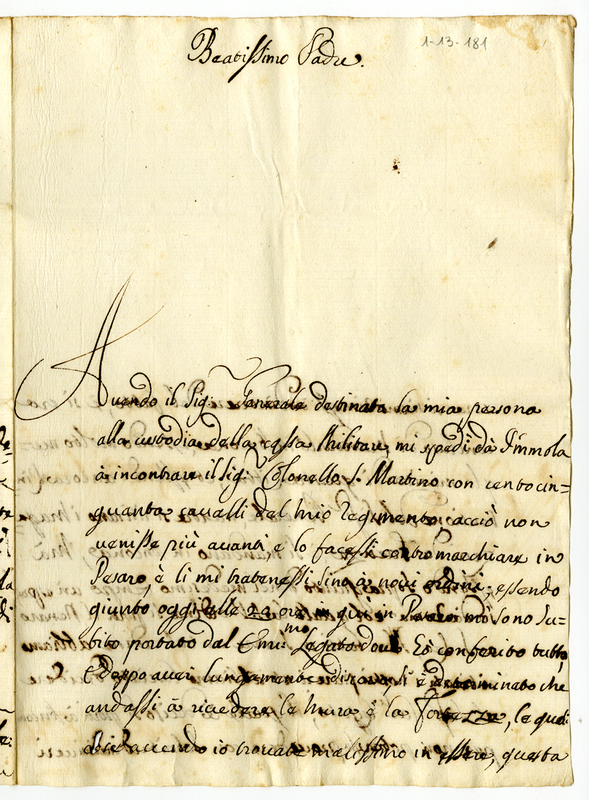 1-13-181
Beatissimo Padre.
Auendo il Sig.r Generale destinata la mia persona
alla custodia della cassa Militare, mi spedì dà Immola
à incontrare il Sig.r Colonello S. Martino con cento cin=
quanta caualli del mio Regimento, acciò non
uenisse più auanti, e lo facessi contromarchiare in
Pesaro, è li mi trattenessi sino a noui ordini; essendo
giunto oggi alle 22 ore qui in Pesaro mi sono su=
bito portato dal Emi.mo Legato doue hò conferito tutto,
e doppo auer lungamente si è determinato che
andassi à riuedere le mura è la Fortezza, le quali
auendo io trouate malissimo in essere, questa